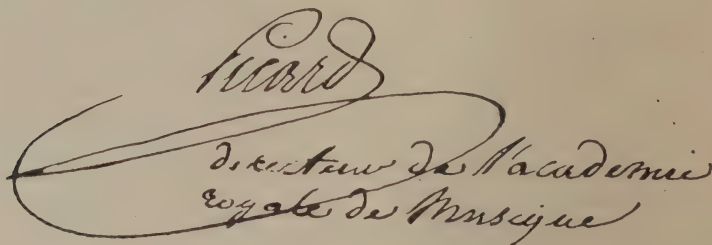 Picard
directeur de l'academie
royale de Musique